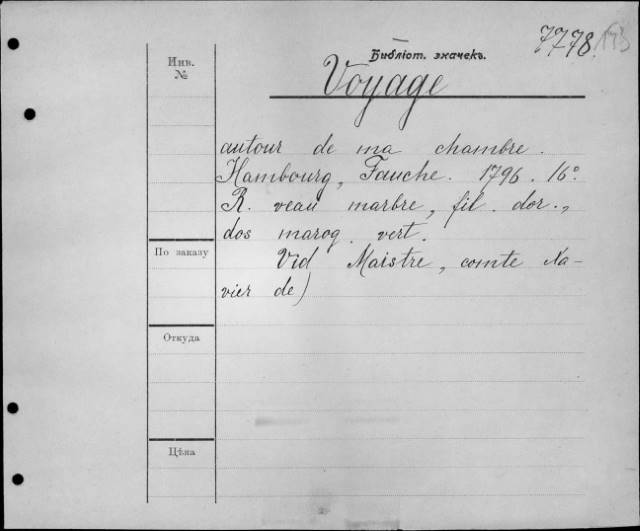 7778
Библіот. значекъ.
Инв.
№
Voyage
autour de ma chambre.
Hambourg, Fauche. 1796. 16°.
R. veau marbre, fil. dor.,
dos maroq. vert.
По заказу
Vid Maistre, comte Xa-
vier de)
Откуда
Цѣна